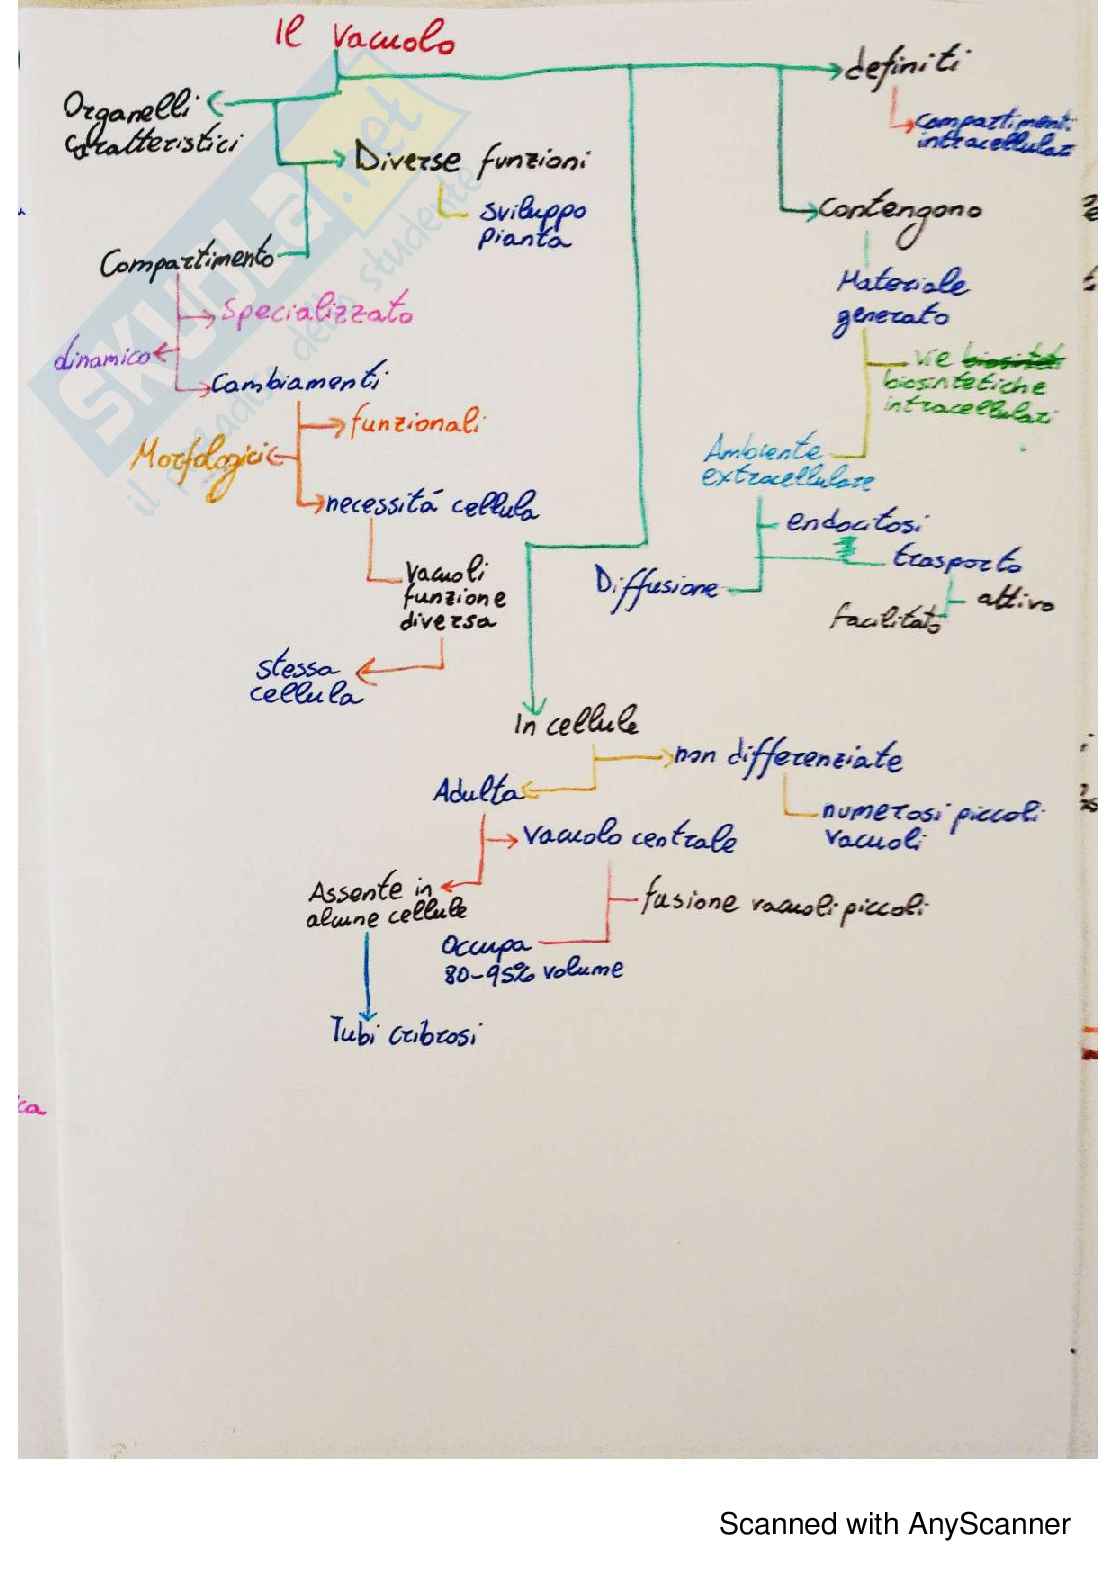 Il vacuolo
definiti
compartimenti
intracellular
Organelli
caratteristici
Diverse funzioni
sviluppo
pianta
Contengono
Compartimento
Materiale
generato
Specializzato
dinamico
Cambiamenti
vie
biosintetiche
intracellulari
funzionali
Morfologici
Ambiente
extracellulare
necessitá cellula
endocitosi
trasporto
attivo
facilitato
Diffusione
Vacuoli
funzione
diversa
stessa
cellula
In cellule
non differenziate
Adulta
numerosi piccoli
vacuoli
vacuolo centrale
Assente in
alcune cellule
fusione vacuoli piccoli
Occupa
80-95% volume
Tubi cribrosi
ca
SKUOLA.net
il paradiso dello studente
Scanned with AnyScanner